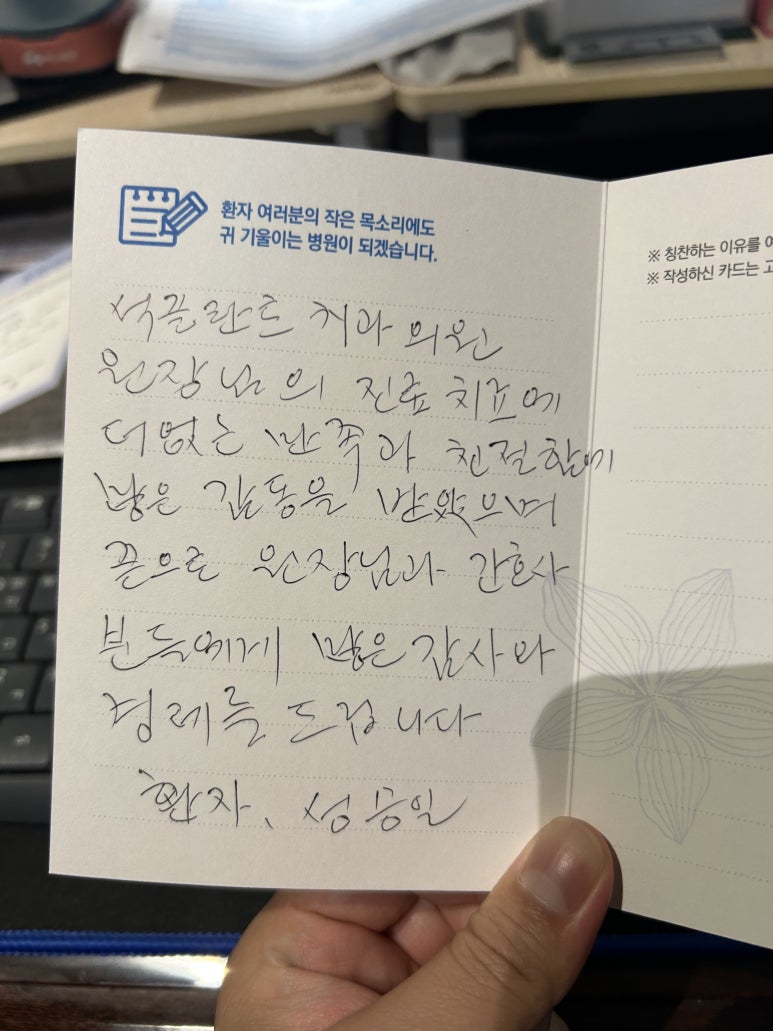 환자 여러분의 작은 목소리에도
귀 기울이는 병원이 되겠습니다.
석플란트 치과 의원
원장님의 진료 치료에
더없는 만족과 친절함에
많은 감동을 받았으며
끝으로 원장님과 간호사
분들에게 많은 감사와
경례를 드립니다
환자, 성
※ 칭찬하는 이유를
※ 작성하신 카드는